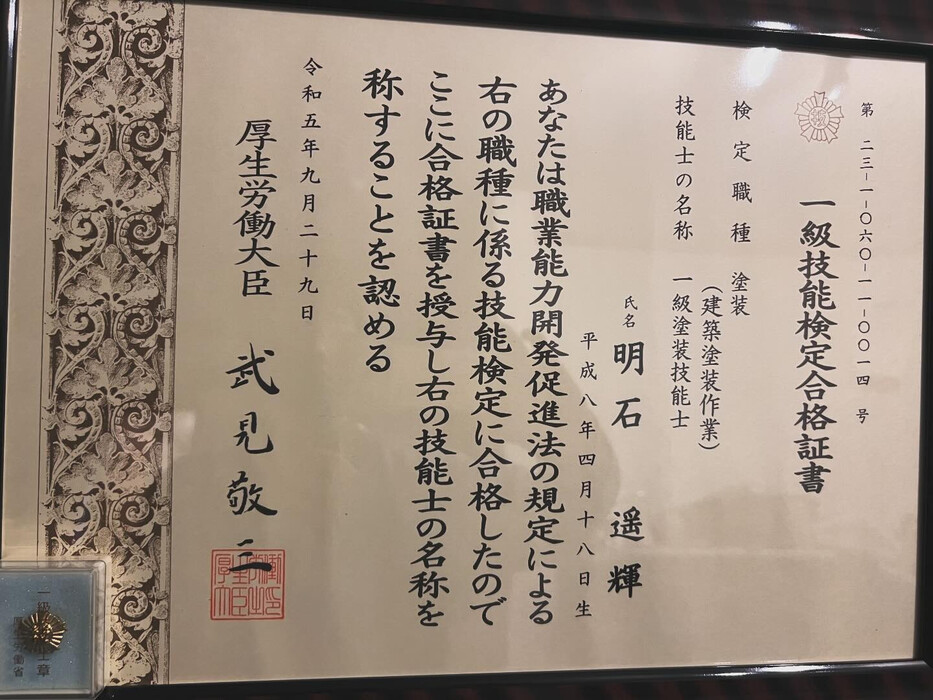 第 二三-一-〇六〇-一一-〇〇一四 号
一級技能検定合格証書
検定職種 塗装
(建築塗装作業)
技能士の名称 一級塗装技能士
氏名 明石 遥輝
平成八年四月十八日生
あなたは職業能力開発促進法の規定による
右の職種に係る技能検定に合格したので
ここに合格証書を授与し右の技能士の名称を
称することを認める
令和五年九月二十九日
厚生労働大臣 武見敬三